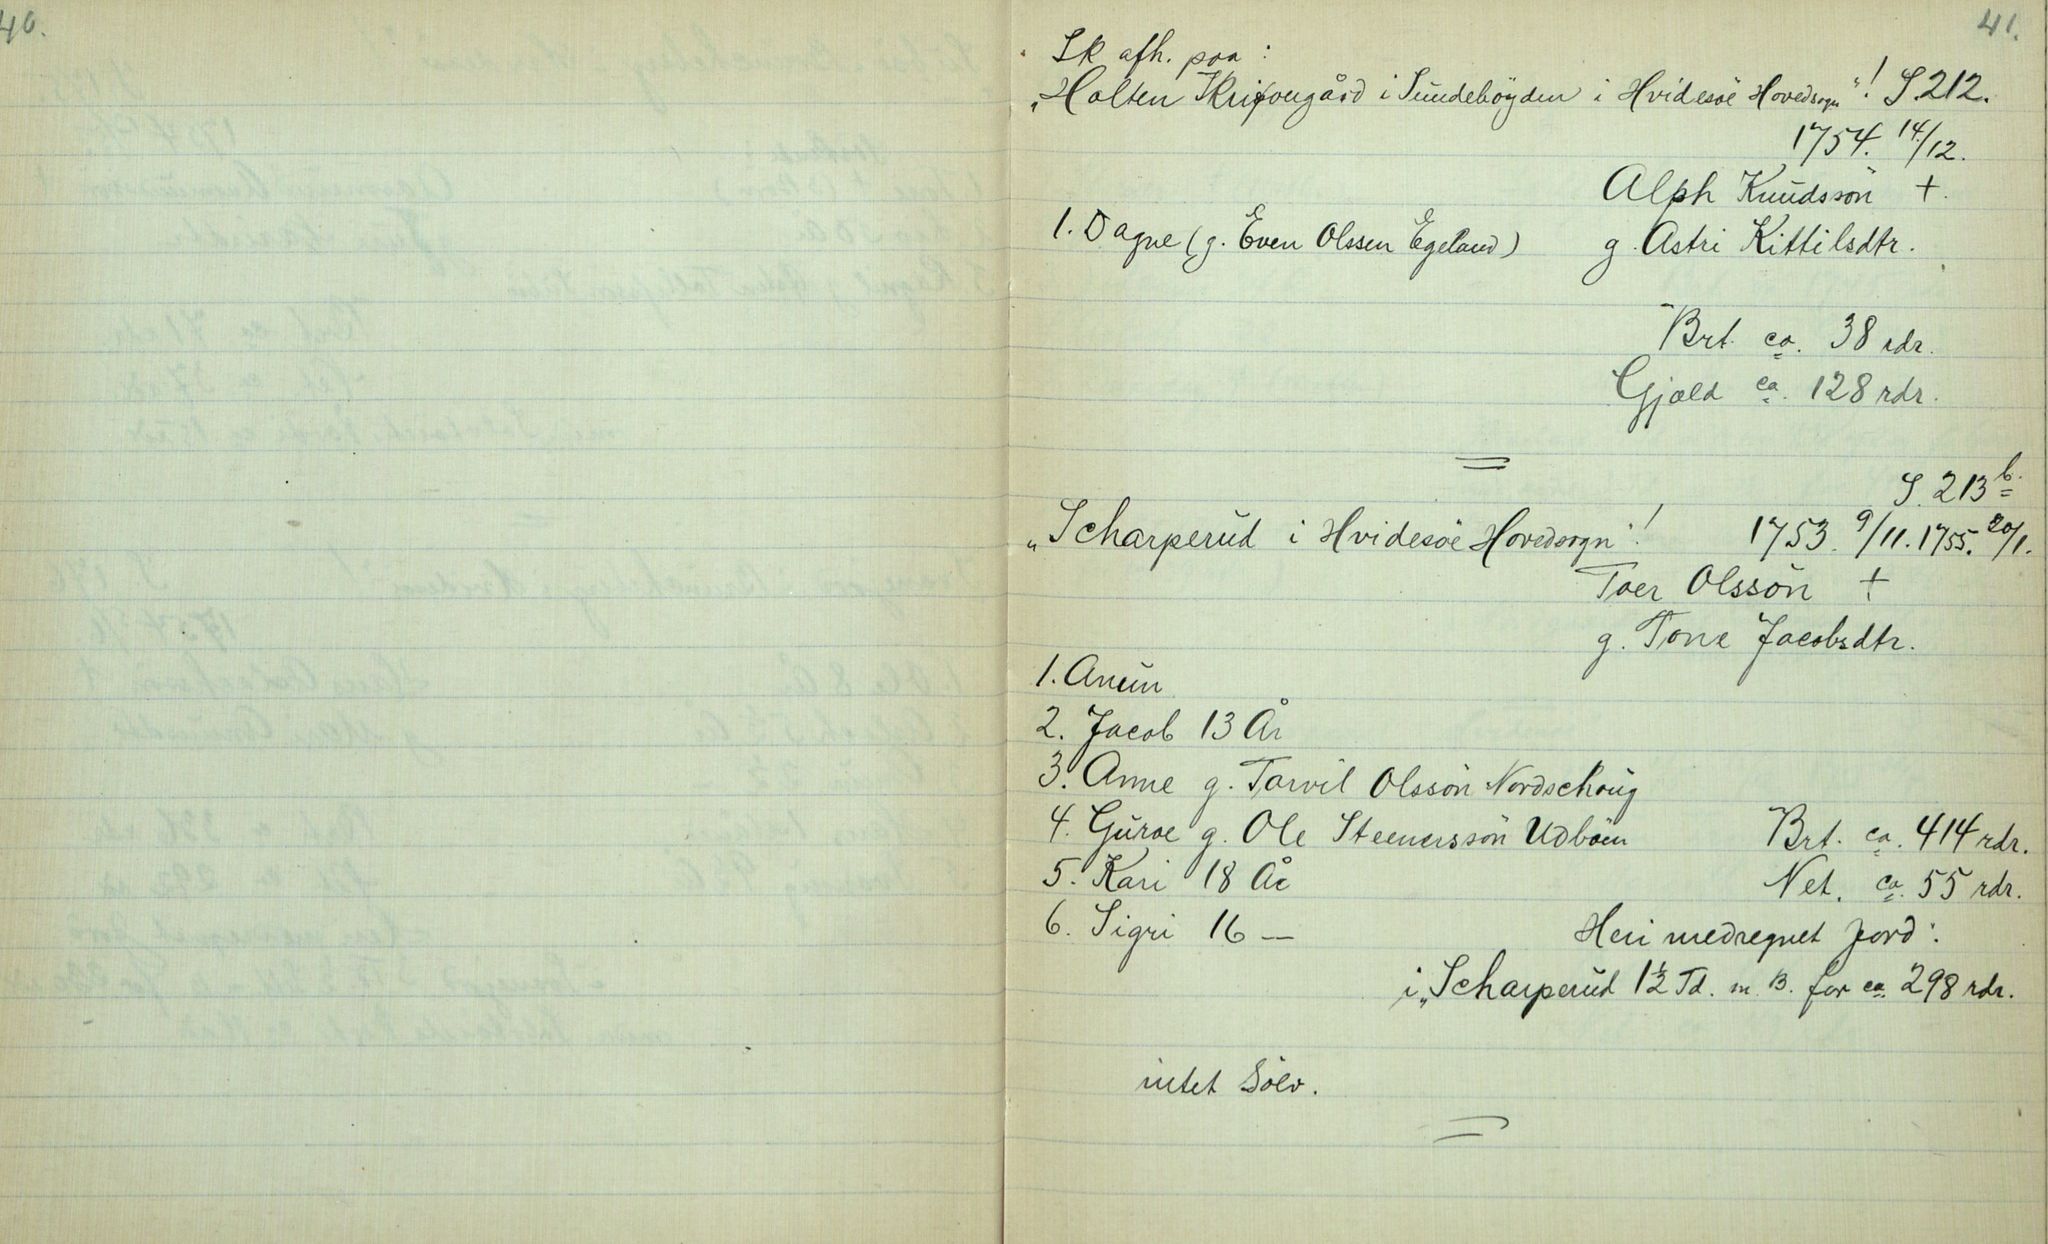 40.
41.
Sk afh. paa:
"Holten i Sundebøyden i Hvidesöe Hovedsogn"! S. 212.
1754. 14/12.
Alph Knudssön +.
1. Dagne (g. Even Olssen Egeland) g. Astri Kittilsdtr.
Brt. ca. 38 rdr.
Gjæld ca. 128 rdr.
S. 213 b.
"Scharperud i Hvidesöe Hovedsogn"! 1753. 9/11. 1755. 20/1.
Toer Olssön +
g. Tone Jacobsdtr.
1. Anun
2. Jacob 13 År
3. Anne g. Tarvil Olssön Nordschoug
4. Guroe g. Ole Steenerssön Udböen Brt. ca. 414 rdr.
5. Kari 18 År Net. ca. 55 rdr.
6. Sigri 16 — Heri medregnet jord:
i "Scharperud 1½ Td. m. B. for ca. 298 rdr.
intet Sölv.